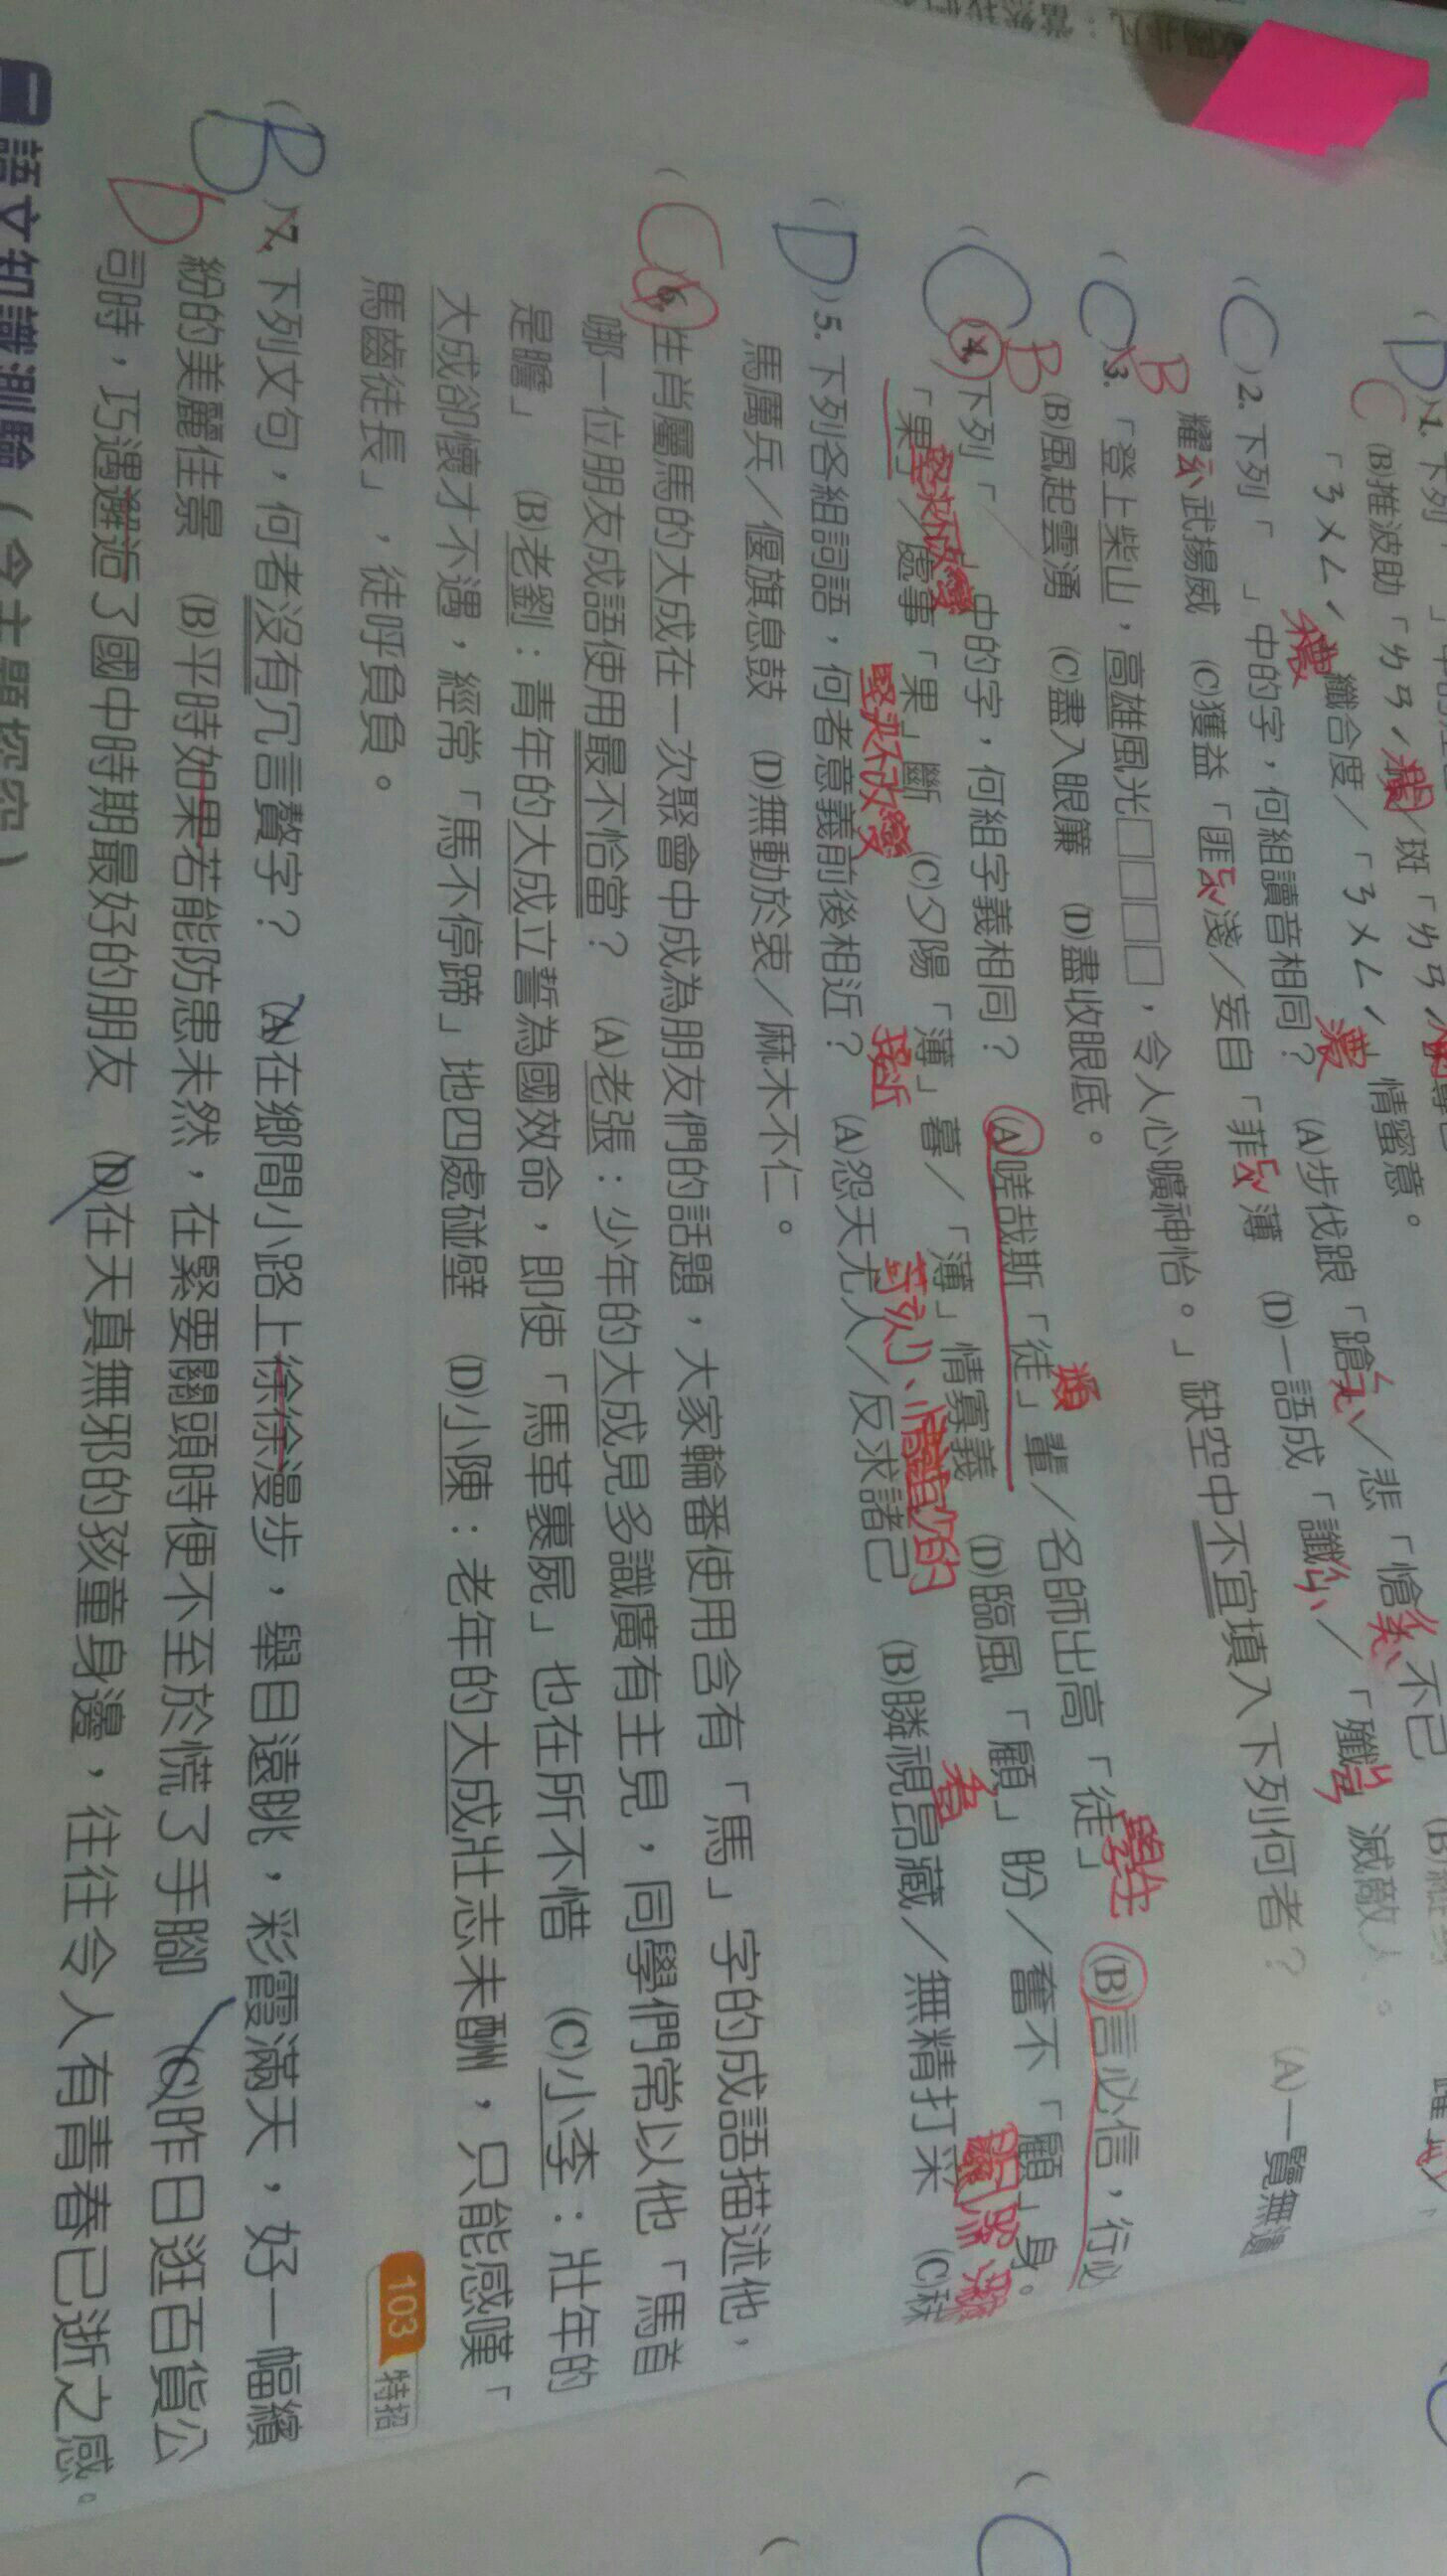 (D)1. 下列
C (B)推波助「ㄌㄢˊ瀾／斑「ㄌㄢˊ
「ㄋㄨㄥˊ穠」纖合度／「ㄋㄨㄥˊ濃」情蜜意。
(C)2. 下列「　」中的字，何組讀音相同？　(A)步伐踉「蹌ㄑㄧㄤˋ／悲「愴ㄔㄨㄤˋ」不已
耀ㄧㄠˋ武揚威　(C)獲益「匪ㄈㄟˇ淺／妄自「菲ㄈㄟˇ薄　(D)一語成「讖ㄔㄣˋ／「殲ㄐㄧㄢ滅敵人。
(C)3. 「登上柴山，高雄風光□□□□，令人心曠神怡。」缺空中不宜填入下列何者？　(A)一覽無遺
B (B)風起雲湧　(C)盡入眼簾　(D)盡收眼底。
(C)4. 下列「　」中的字，何組字義相同？　(A)嗟哉斯「徒」類輩／名師出高「徒」學生　(B)言必信，行必
B 「果」堅決不改變／處事「果」斷堅決不改變　(C)夕陽「薄」接近暮／「薄」情寡義　(D)臨風「顧」看盼／奮不「顧」身。
(D)5. 下列各組詞語，何者意義前後相近？　(A)怨天尤人／反求諸己　(B)瞵視昂藏／無精打采　(C)秣
馬厲兵／偃旗息鼓　(D)無動於衷／麻木不仁。
(C)6. 生肖屬馬的大成在一次聚會中成為朋友們的話題，大家輪番使用含有「馬」字的成語描述他，
哪一位朋友成語使用最不恰當？　(A)老張：少年的大成見多識廣有主見，同學們常以他「馬首
是瞻」　(B)老劉：青年的大成立誓為國效命，即使「馬革裹屍」也在所不惜　(C)小李：壯年的
大成卻懷才不遇，經常「馬不停蹄」地四處碰壁　(D)小陳：老年的大成壯志未酬，只能感嘆「
馬齒徒長」，徒呼負負。
103 特招
(B)7. 下列文句，何者沒有冗言贅字？　(A)在鄉間小路上徐徐漫步，舉目遠眺，彩霞滿天，好一幅繽
D 紛的美麗佳景　(B)平時如果若能防患未然，在緊要關頭時便不至於慌了手腳　(C)昨日逛百貨公
司時，巧遇邂逅了國中時期最好的朋友　(D)在天真無邪的孩童身邊，往往令人有青春已逝之感。
語文知識測驗（令主題探究）